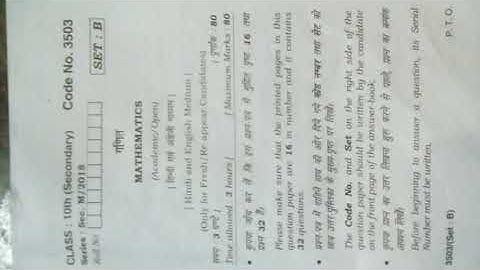 CLASS : 10th (Secondary) Code No. 3503
Series : Sec. M/2018
Roll No. SET : B
गणित
MATHEMATICS
(Academic/Open)
[ हिन्दी एवं अंग्रेजी माध्यम ]
[ Hindi and English Medium ]
(Only for Fresh/Re-appear Candidates)
समय : 3 घण्टे ] [ पूर्णांक : 80
Time allowed : 3 hours ] [ Maximum Marks : 80
• कृपया जाँच कर लें कि इस प्रश्न-पत्र में मुद्रित पृष्ठ 16 तथा
प्रश्न 32 हैं।
Please make sure that the printed pages in this
question paper are 16 in number and it contains
32 questions.
• प्रश्न-पत्र में दाहिने हाथ की ओर दिये गये कोड नम्बर तथा सेट को
छात्र उत्तर-पुस्तिका के मुख्य-पृष्ठ पर लिखें।
The Code No. and Set on the right side of the
question paper should be written by the candidate
on the front page of the answer-book.
• कृपया प्रश्न का उत्तर लिखना शुरू करने से पहले, प्रश्न का क्रमांक
अवश्य लिखें।
Before beginning to answer a question, its Serial
Number must be written.
3503/(Set B) P. T. O.